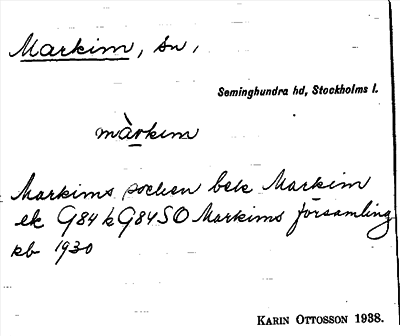 Markim, sn,
Seminghundra hd, Stockholms l.
màrkim
Markims socken bek Markim
ek G84 k G84 SO Markims församling
kb 1930
KARIN OTTOSSON 1938.